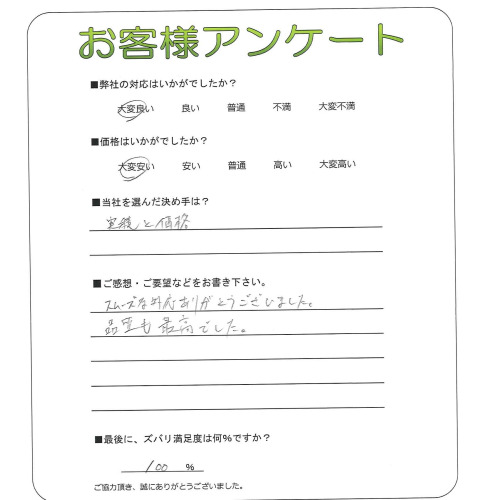 お客様アンケート
■弊社の対応はいかがでしたか？
大変良い 良い 普通 不満 大変不満
■価格はいかがでしたか？
大変安い 安い 普通 高い 大変高い
■当社を選んだ決め手は？
実績と価格
■ご感想・ご要望などをお書き下さい。
スムーズな対応ありがとうございました。
品質も最高でした。
■最後に、ズバリ満足度は何%ですか？
100 %
ご協力頂き、誠にありがとうございました。